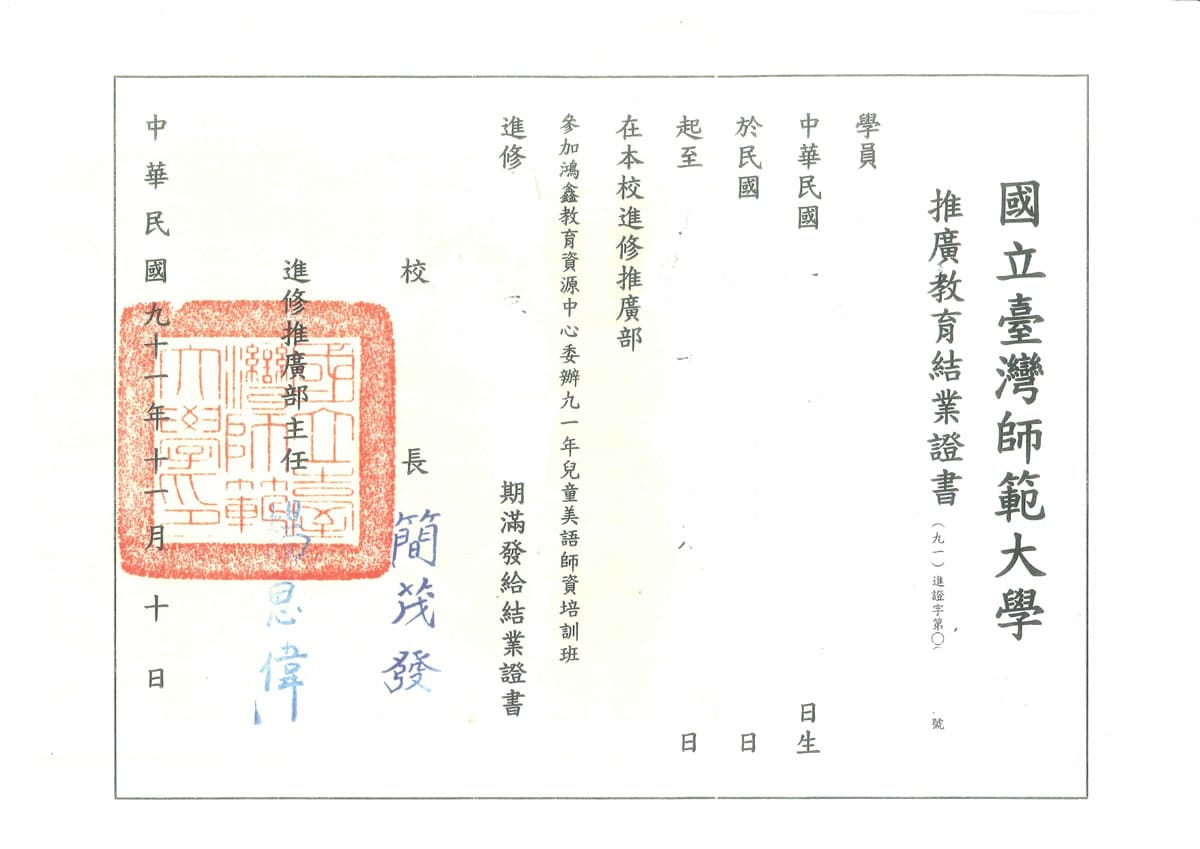 國立臺灣師範大學
推廣教育結業證書
（九一）進證字第〇 號
學員
中華民國 日生
於民國 日
起至 日
在本校進修推廣部
參加鴻鑫教育資源中心委辦九一年兒童美語師資培訓班
進修 期滿發給結業證書
校長 簡茂發
進修推廣部主任 思偉
國立臺灣師範大學印
中華民國九十一年十一月十日